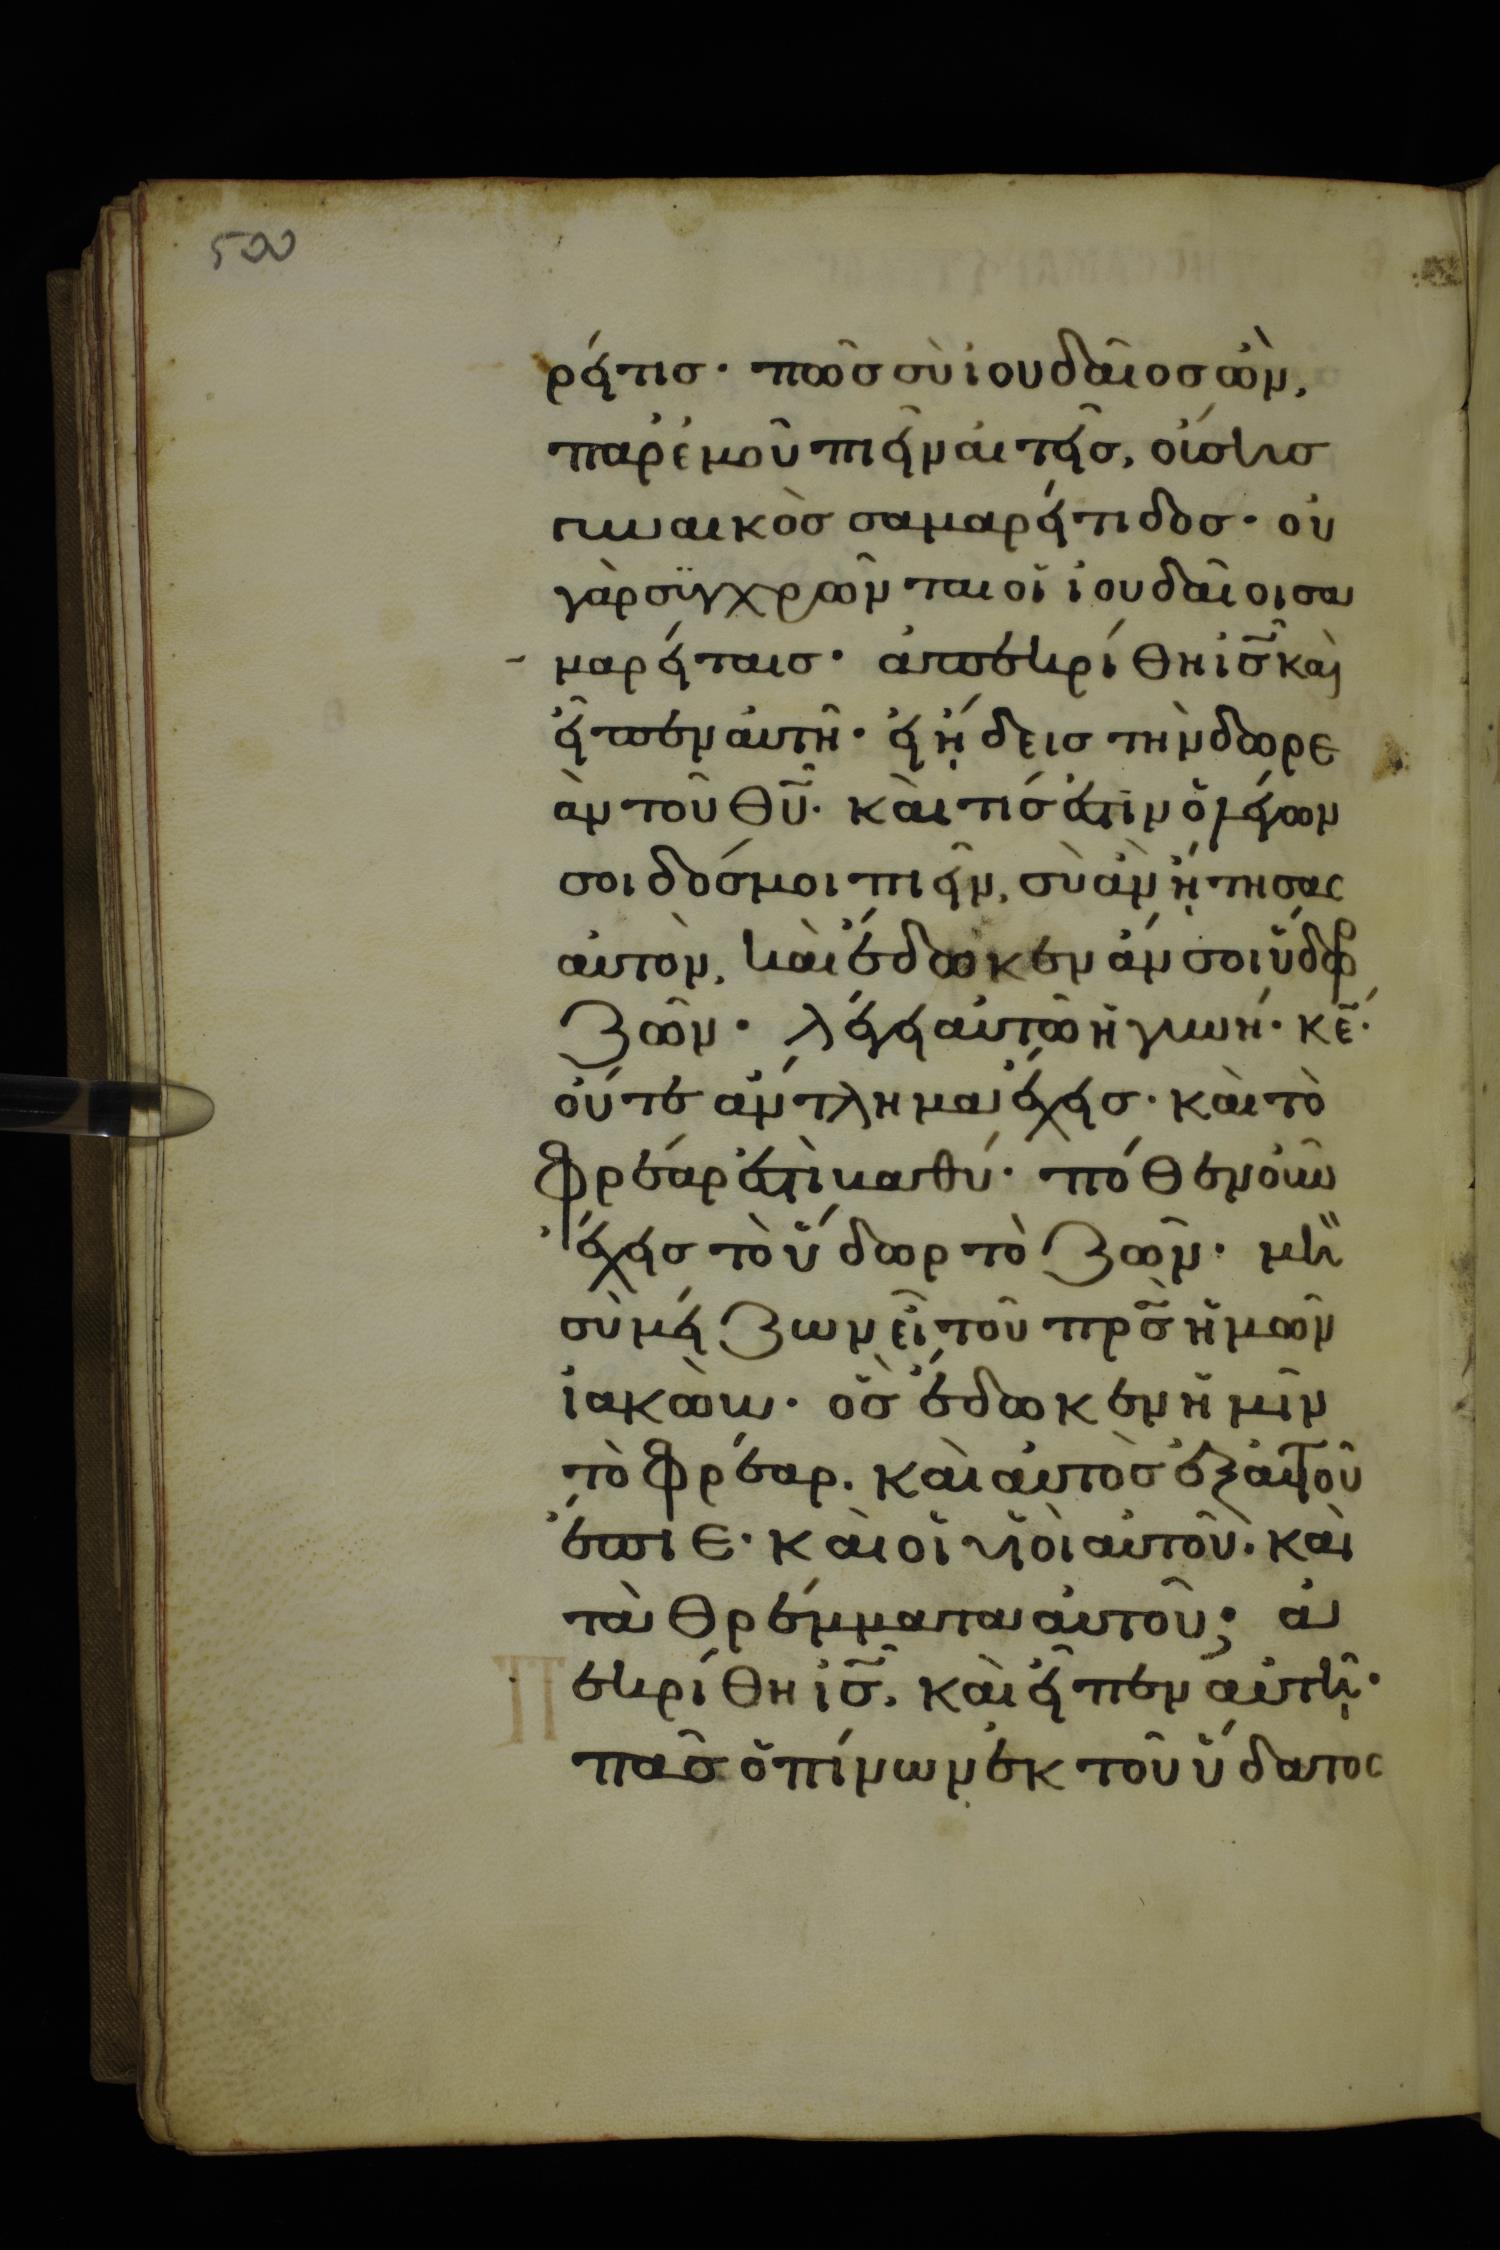 500
ρείτις· πῶς σὺ ἰουδαῖος ὢν,
παρ ἐμοῦ πιεῖν αἰτεῖς, οὔσης
γυναικὸς σαμαρείτιδος· οὐ
γὰρ συγχρῶνται οἱ ἰουδαῖοι σα
μαρείταις· ἀπεκρίθη ἰς̅ καὶ
εἶπεν αὐτῆ· εἰ ἤδεις τὴν δωρε
ὰν τοῦ θυ̅· καὶ τίς ἐστὶν ὁ λέγων
σοι δός μοι πιεῖν, σὺ ἂν ἤτησας
αὐτὸν, καὶ ἔδωκεν ἄν σοι ὕδωρ
ζῶν· λέγει αὐτῶ ἡ γυνή· κε̅·
οὔτε ἄντλημα ἔχεις· καὶ τὸ
φρέαρ ἐστὶ βαθύ· πόθεν οὖν
ἔχεις τὸ ὕδωρ τὸ ζῶν· μὴ
σὺ μείζων εἶ τοῦ πρς̅ ἡμῶν
ἰακὼβ· ὃς ἔδωκεν ἡμῖν
τὸ φρέαρ. καὶ αὐτὸς ἐξ αὐτοῦ
ἔπιε· καὶ οἱ υἱοὶ αὐτοῦ· καὶ
τὰ θρέμματα αὐτοῦ; ἀ
πεκρίθη ἰς̅. καὶ εἶπεν αὐτῆ·
πᾶς ὁ πίνων ἐκ τοῦ ὕδατος